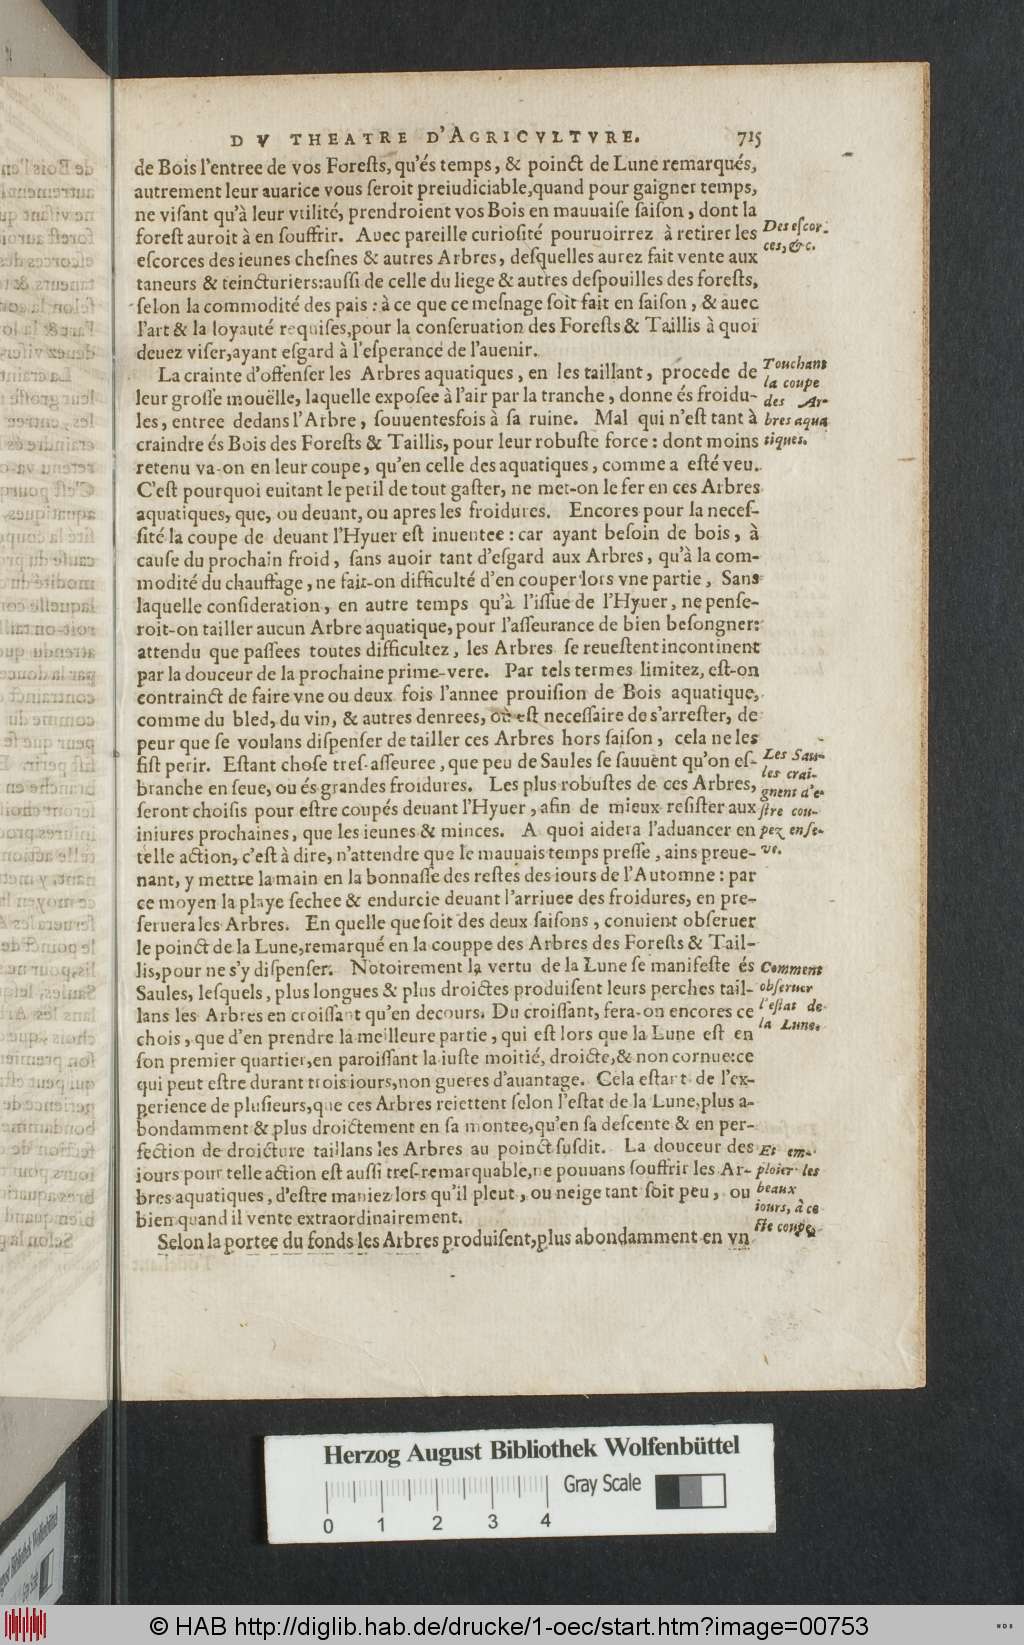 DV THEATRE D'AGRICVLTVRE. 715
de Bois l'entree de vos Foreſts, qu'és temps, & poinct de Lune remarqués,
autrement leur auarice vous ſeroit preiudiciable, quand pour gaigner temps,
ne viſant qu'à leur vtilité, prendroient vos Bois en mauuaiſe ſaiſon, dont la
foreſt auroit à en ſouffrir. Auec pareille curioſité pouruoirrez à retirer les
eſcorces des ieunes cheſnes & autres Arbres, deſquelles aurez fait vente aux
taneurs & teincturiers: auſſi de celle du liege & autres deſpouilles des foreſts,
ſelon la commodité des pais: à ce que ce meſnage ſoit fait en ſaiſon, & auec
l'art & la loyauté requiſes, pour la conſeruation des Foreſts & Taillis à quoi
deuez viſer, ayant eſgard à l'eſperance de l'auenir.
Des eſcor-
ces, &c.
La crainte d'offenſer les Arbres aquatiques, en les taillant, procede de
leur groſſe mouëlle, laquelle expoſee à l'air par la tranche, donne és froidu-
les, entree dedans l'Arbre, ſouuentesfois à ſa ruine. Mal qui n'eſt tant à
craindre és Bois des Foreſts & Taillis, pour leur robuſte force: dont moins
retenu va-on en leur coupe, qu'en celle des aquatiques, comme a eſté veu.
C'eſt pourquoi euitant le peril de tout gaſter, ne met-on le fer en ces Arbres
aquatiques, que, ou deuant, ou apres les froidures. Encores pour la neceſ-
ſité la coupe de deuant l'Hyuer eſt inuentee: car ayant beſoin de bois, à
cauſe du prochain froid, ſans auoir tant d'eſgard aux Arbres, qu'à la com-
modité du chauffage, ne fait-on difficulté d'en couper lors vne partie, Sans
laquelle conſideration, en autre temps qu'à l'iſſue de l'Hyuer, ne penſe-
roit-on tailler aucun Arbre aquatique, pour l'aſſeurance de bien beſongner:
attendu que paſſees toutes difficultez, les Arbres ſe reueſtent incontinent
par la douceur de la prochaine prime-vere. Par tels termes limitez, eſt-on
contrainct de faire vne ou deux fois l'annee prouiſion de Bois aquatique,
comme du bled, du vin, & autres denrees, où eſt neceſſaire de s'arreſter, de
peur que ſe voulans diſpenſer de tailler ces Arbres hors ſaiſon, cela ne les
fiſt perir. Eſtant choſe treſ-aſſeuree, que peu de Saules ſe ſauuent qu'on eſ-
branche en ſeue, ou és grandes froidures. Les plus robuſtes de ces Arbres,
ſeront choiſis pour eſtre coupés deuant l'Hyuer, afin de mieux reſiſter aux
iniures prochaines, que les ieunes & minces. A quoi aidera l'aduancer en
telle action, c'eſt à dire, n'attendre que le mauuais temps preſſe, ains preue-
nant, y mettre la main en la bonnaſſe des reſtes des iours de l'Automne: par
ce moyen la playe ſechee & endurcie deuant l'arriuee des froidures, en pre-
ſeruera les Arbres. En quelle que ſoit des deux ſaiſons, conuient obſeruer
le poinct de la Lune, remarqué en la couppe des Arbres des Foreſts & Tail-
lis, pour ne s'y diſpenſer. Notoirement la vertu de la Lune ſe manifeſte és
Saules, leſquels, plus longues & plus droictes produiſent leurs perches tail-
lans les Arbres en croiſſant qu'en decours. Du croiſſant, fera-on encores ce
chois, que d'en prendre la meilleure partie, qui eſt lors que la Lune eſt en
ſon premier quartier, en paroiſſant la iuſte moitié, droicte, & non cornue: ce
qui peut eſtre durant trois iours, non gueres d'auantage. Cela eſtant de l'ex-
perience de pluſieurs, que ces Arbres reiettent ſelon l'eſtat de la Lune, plus a-
bondamment & plus droictement en ſa montee, qu'en ſa deſcente & en per-
fection de droicture taillans les Arbres au poinct ſuſdit. La douceur des
iours pour telle action eſt auſſi treſ-remarquable, ne pouuans ſouffrir les Ar-
bres aquatiques, d'eſtre maniez lors qu'il pleut, ou neige tant ſoit peu, ou
bien quand il vente extraordinairement.
Touchant
la coupe
des Ar-
bres aqua
tiques.
Les Sau-
les crai-
gnent d'e-
ſtre cou-
pez en ſe-
ue.
Comment
obſeruer
l'eſtat de
la Lune.
Et em-
ploier les
beaux
iours, à ce
ſte coupe.
Selon la portee du fonds les Arbres produiſent, plus abondamment en vn
Herzog August Bibliothek Wolfenbüttel
Gray Scale
0 1 2 3 4
© HAB http://diglib.hab.de/drucke/1-oec/start.htm?image=00753